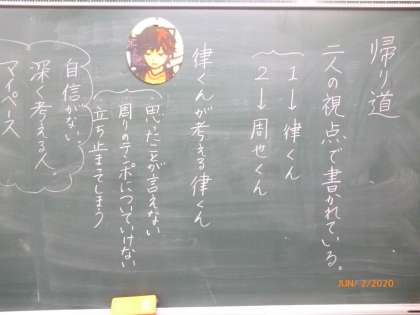 帰り道
二人の視点で書かれている。
1→律くん
2→周也くん
律くんが考える律くん
・思ったことが言えない
・周りのテンポについていけない
・立ち止まってしまう
自信がない
深く考える人
マイペース
JUN/ 2/2020